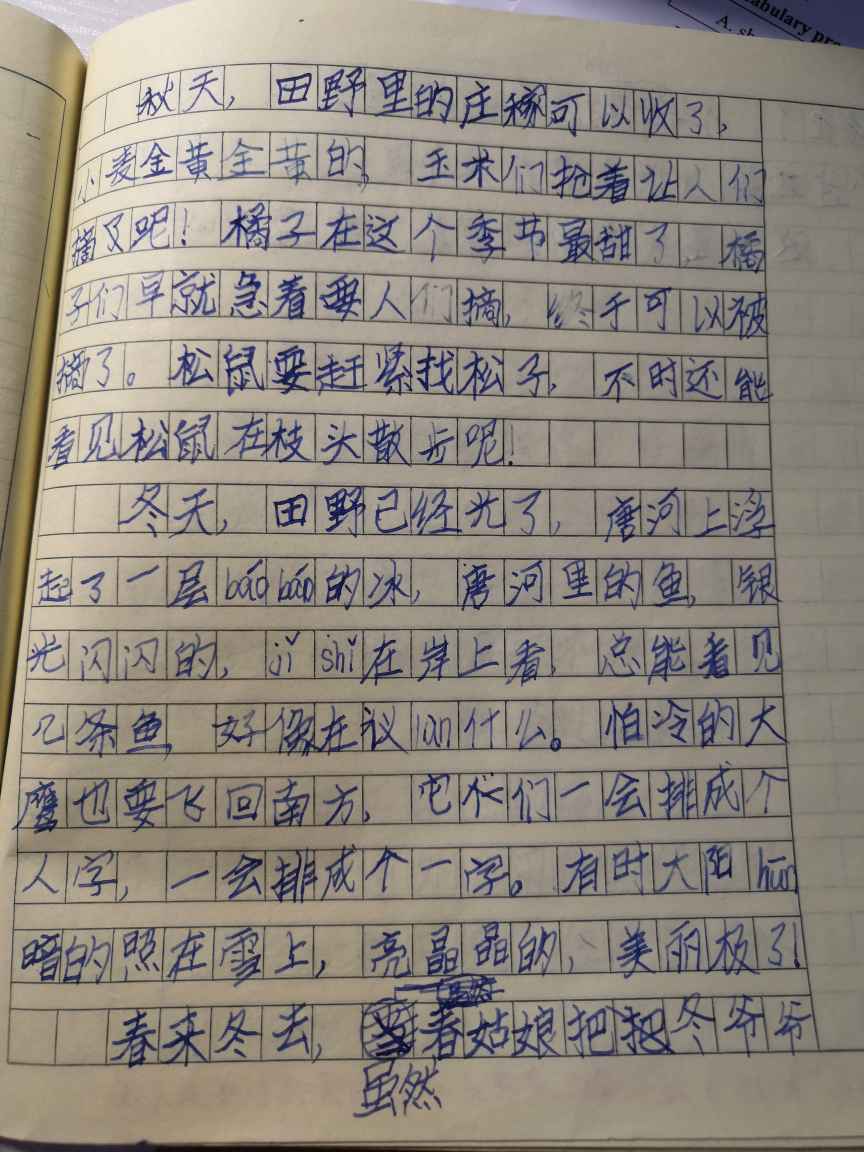 abulary pre
A. sh
秋天，田野里的庄稼可以收了，
小麦金黄金黄的，玉术们抢着让人们
摘了吧！橘子在这个季节最甜了，橘
子们早就急着要人们摘，终于可以被
摘了。松鼠要赶紧找松子，不时还能
看见松鼠在枝头散步呢！
冬天，田野已经光了，唐河上浮
起了一层báo báo的冰，唐河里的鱼，银
光闪闪的，jǐ shǐ在岸上看，总能看见
几条鱼，好像在议lùn什么。怕冷的大
鹰也要飞回南方，它们一会排成个
人字，一会排成个一字。有时大阳hūn
暗的照在雪上，亮晶晶的，美丽极了！
春来冬去，春姑娘把把冬爷爷
虽然